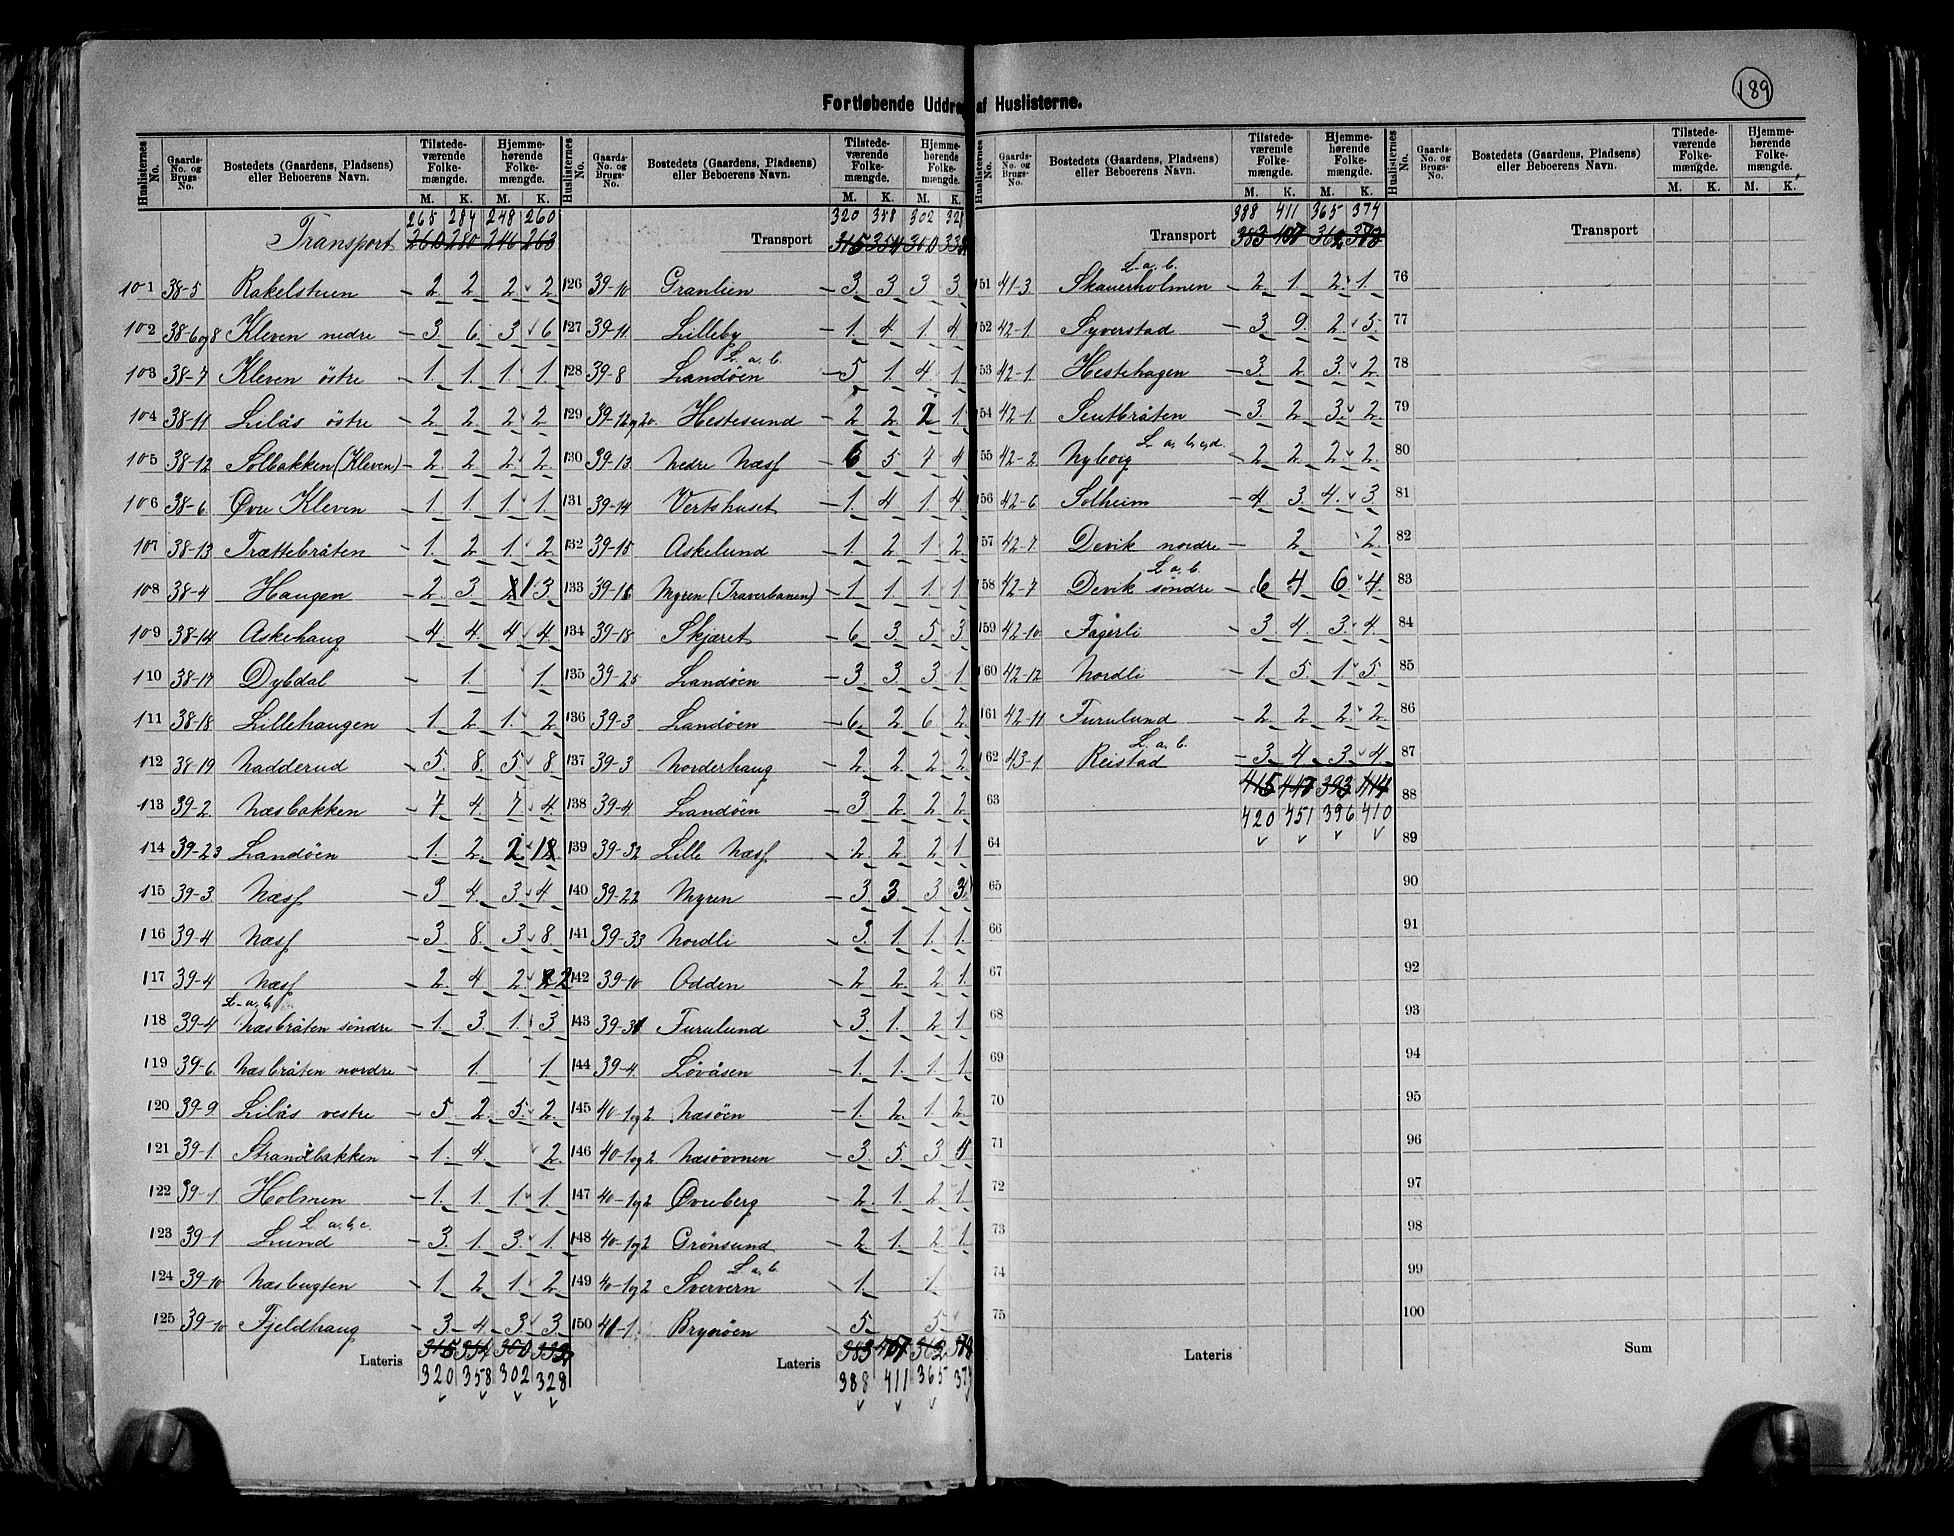 189
Fortløbende Uddrag af Huslisterne.
Huslisternes No. Gaards-No. og Brugs-No. Bostedets (Gaardens, Pladsens) eller Beboerens Navn. Tilstedeværende Folkemængde. M. K. Hjemmehørende Folkemængde. M. K.
265 284 248 260
Transport 260 280 246 263
101 38-5 Rakelstuen 2 2 2 2
102 38-6 og 8 Kleven nedre 3 6 3 6
103 38-7 Kleven østre 1 1 1 1
104 38-11 Lilås østre 2 2 2 2
105 38-12 Solbakken (Kleven) 2 2 2 2
106 38-6 Øvre Kleven 1 1 1 1
107 38-13 Trættebråten 1 2 1 2
108 38-4 Haugen 2 3 1 3
109 38-14 Askehaug 4 4 4 4
110 38-17 Dybdal 1 1
111 38-18 Lillehaugen 1 2 1 2
112 38-19 Nadderud 5 8 5 8
113 39-2 Næsbakken 7 4 7 4
114 39-23 Landøen 1 2 2 1
115 39-3 Næss 3 4 3 4
116 39-4 Næss 3 8 3 8
117 39-4 Næss 2 4 2 2
L. a, b,
118 39-4 Næsbråten søndre 1 3 1 3
119 39-6 Næsbråten nordre 1 1
120 39-9 Lilås vestre 5 2 5 2
121 39-1 Strandbakken 1 4 2
122 39-1 Holmen 1 1 1 1
L. a, b, c.
123 39-1 Lund 3 1 3 1
124 39-10 Næsbugten 1 2 1 2
125 39-10 Fjeldhaug 3 4 3 3
Lateris 315 354 300 332
320 358 302 328
Huslisternes No. Gaards-No. og Brugs-No. Bostedets (Gaardens, Pladsens) eller Beboerens Navn. Tilstedeværende Folkemængde. M. K. Hjemmehørende Folkemængde. M. K.
320 358 302 328
Transport 315 354 300 332
126 39-10 Granlien 3 3 3 3
127 39-11 Lilleby 1 4 1 4
L. a. b.
128 39-8 Landøen 5 1 4 1
129 39-12 og 20 Hestesund 2 2 2 1
130 39-13 Nedre Næss 6 5 7 4
131 39-14 Vertshuset 1 4 1 4
132 39-15 Askelund 1 2 1 2
133 39-16 Myren (Traverbanen) 1 1 1 1
134 39-18 Skjæret 6 3 5 3
135 39-25 Landøen 3 3 3 1
136 39-3 Landøen 6 2 6 2
137 39-3 Norderhaug 2 2 2 2
138 39-4 Landøen 3 2 2 2
139 39-32 Lille Næss 2 2 2 1
140 39-22 Myren 3 3 3 3
141 39-33 Nordli 3 1 1 1
142 39-10 Odden 2 2 2 1
143 39-31 Furulund 3 1 2 1
144 39-4 Løvåsen 1 1 1 1
145 40-1 og 2 Næsøen 1 2 1 2
146 40-1 og 2 Næsøvnen 3 5 3 4
147 40-1 og 2 Øvreberg 2 1 2 1
148 40-1 og 2 Grönsund 2 1 2 1
L. a, b.
149 40-1 og 2 Sververn 1 1
150 41-1 Brynøen 5 5
Lateris 383 407 362 378
388 411 365 374
Huslisternes No. Gaards-No. og Brugs-No. Bostedets (Gaardens, Pladsens) eller Beboerens Navn. Tilstedeværende Folkemængde. M. K. Hjemmehørende Folkemængde. M. K.
388 411 365 374
Transport 383 407 362 378
L. a. b.
151 41-3 Skauerholmen 2 1 2 1
152 42-1 Syverstad 3 9 2 5
153 42-1 Hestehagen 3 2 3 2
154 42-1 Sentbråten 3 2 3 2
L. a, b, c, d.
155 42-2 Nyborg 2 2 2 2
156 42-6 Solheim 4 3 4 3
157 42-7 Devik nordre 2 2
L. a, b.
158 42-7 Devik søndre 6 4 6 4
159 42-10 Fagerli 3 4 3 4
160 42-12 Nordli 1 5 1 5
161 42-11 Furulund 2 2 2 2
L. a, b.
162 43-1 Reistad 3 4 3 4
415 447 393 414
63
420 451 396 410
64
65
66
67
68
69
70
71
72
73
74
75
Lateris
Huslisternes No. Gaards-No. og Brugs-No. Bostedets (Gaardens, Pladsens) eller Beboerens Navn. Tilstedeværende Folkemængde. M. K. Hjemmehørende Folkemængde. M. K.
Transport
76
77
78
79
80
81
82
83
84
85
86
87
88
89
90
91
92
93
94
95
96
97
98
99
100
Sum